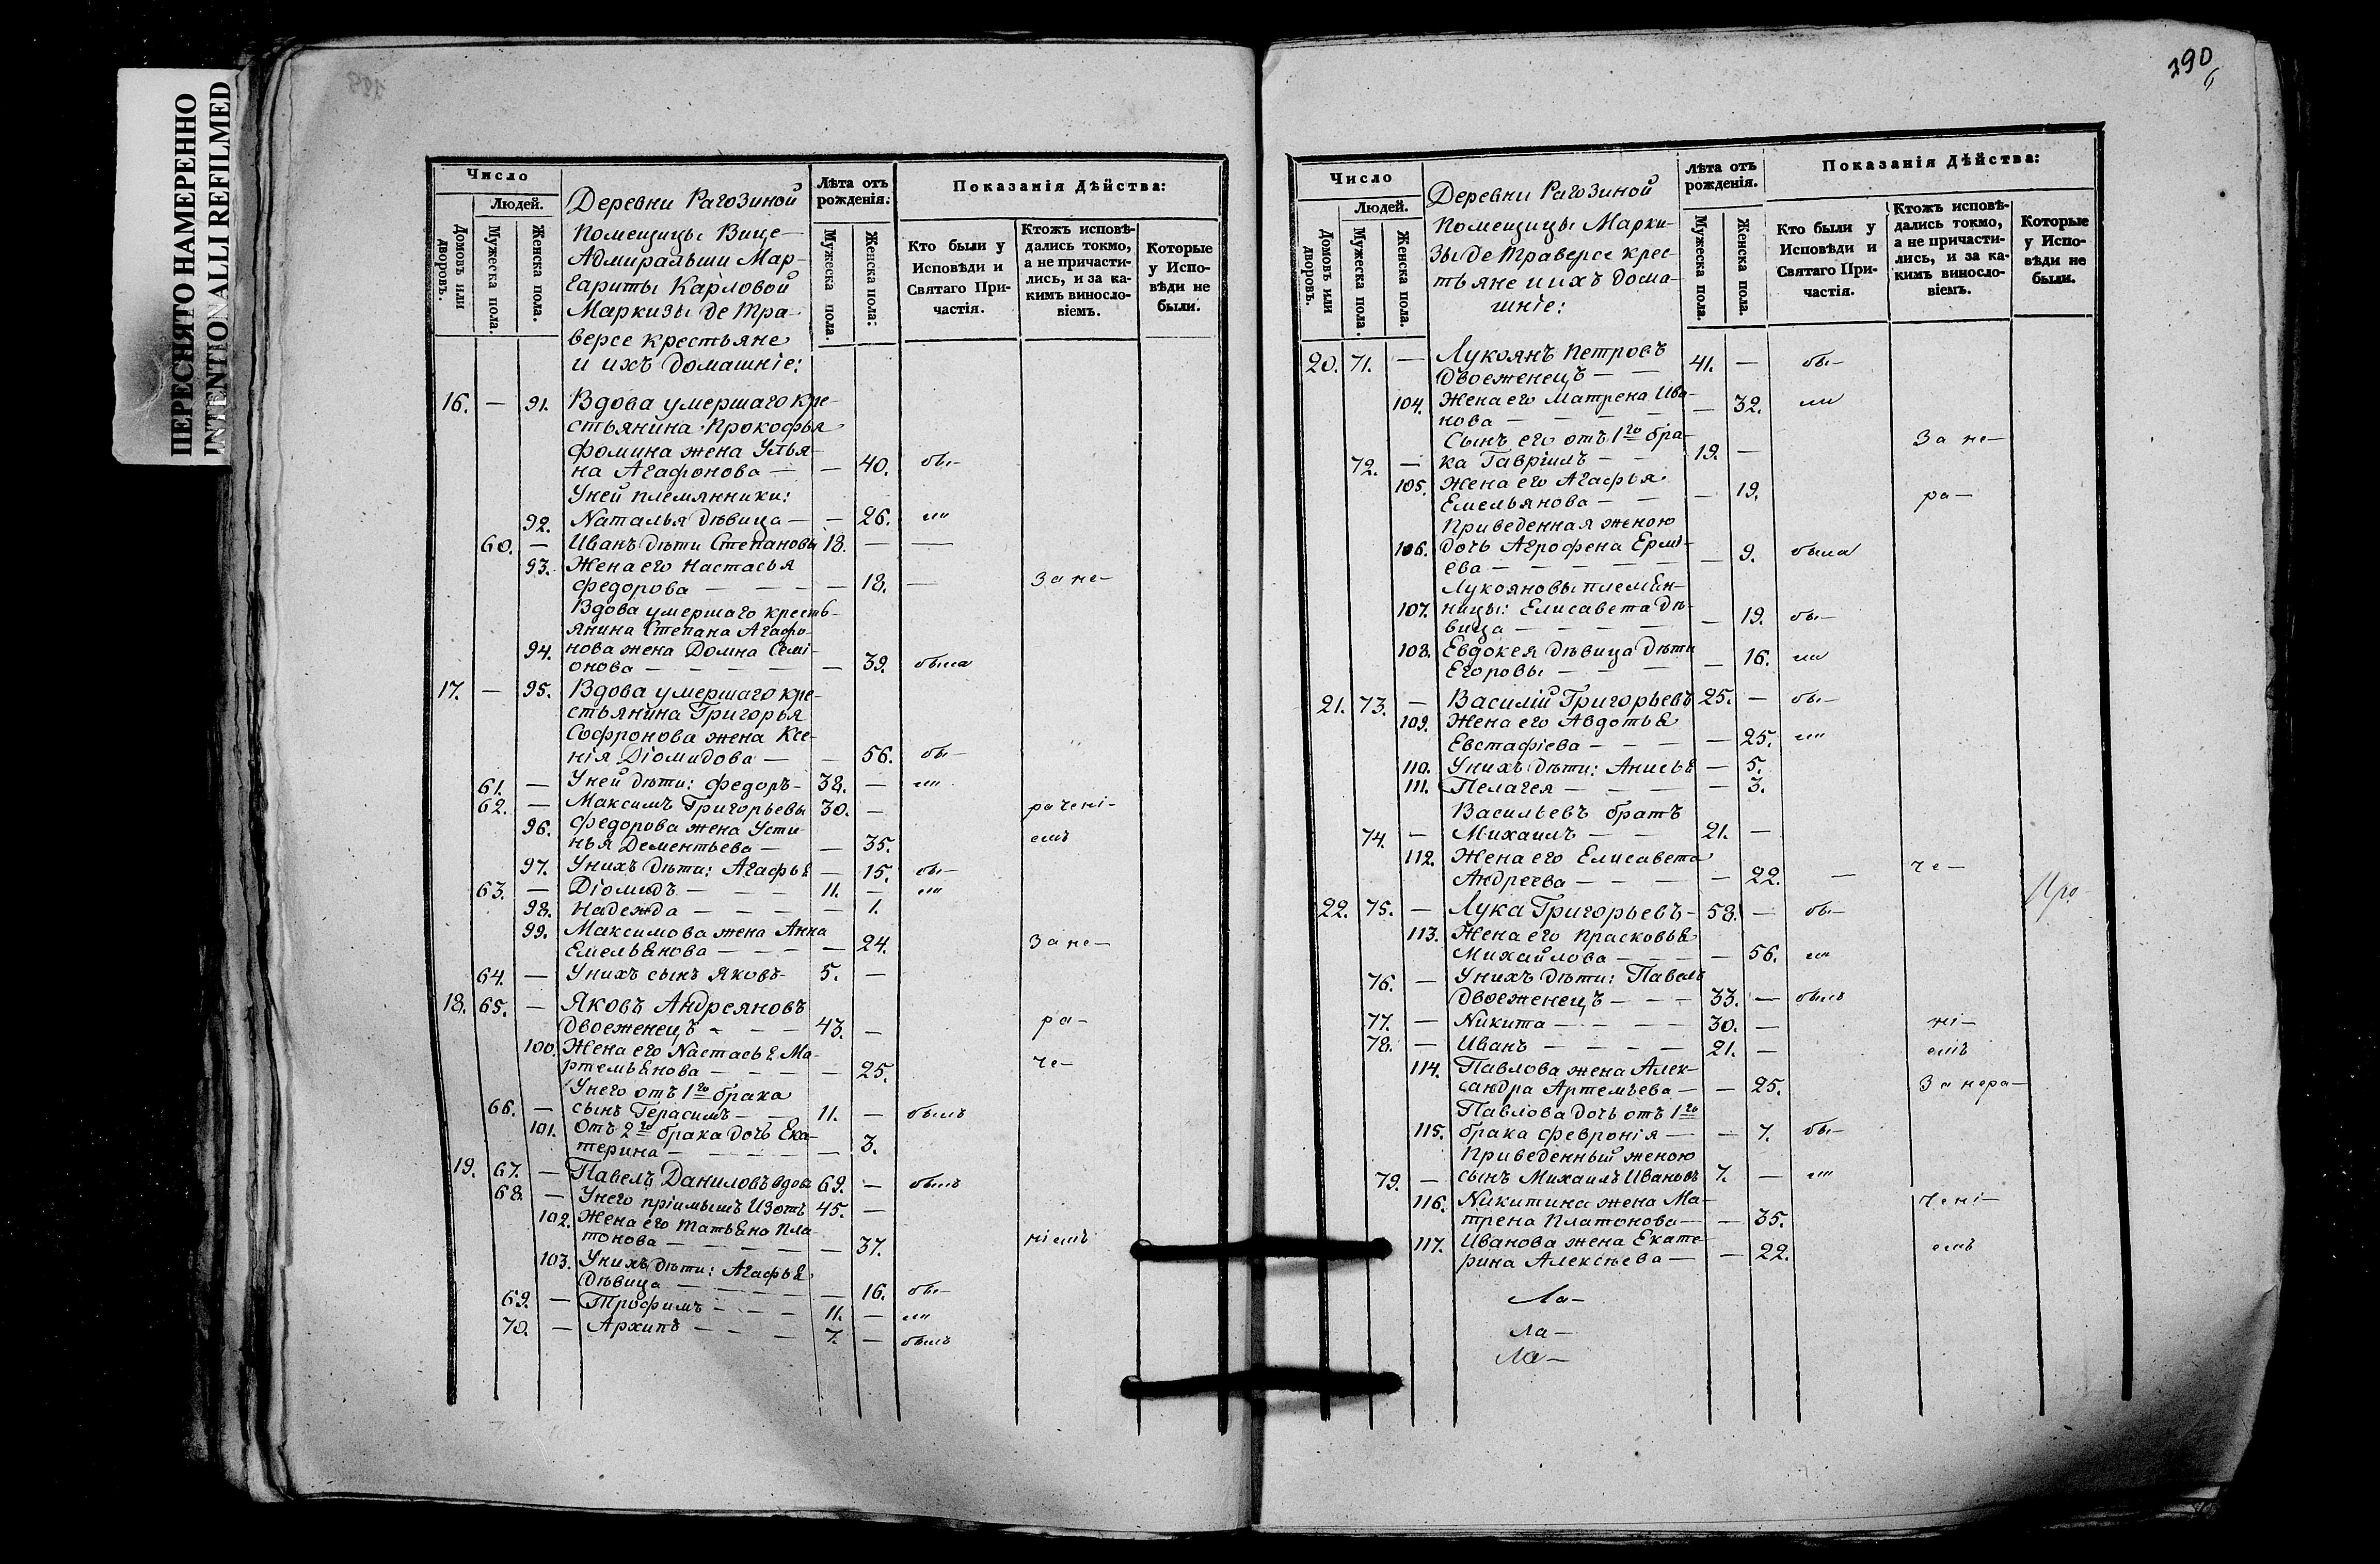 ПЕРЕСНЯТО НАМЕРЕННО
INTENTIONALLI REFILMED
Число
Людей.
Домовъ или дворовъ.
Мужеска пола.
Женска пола.
Деревни Рагозиной
Помещицы Вице-
Адмиральши Мар-
гариты Карловой
Маркизы де Тра-
версе крестьяне
и ихъ домашніе:
Лѣта отъ рожденія.
Мужеска пола.
Женска пола.
Показанія Дѣйства:
Кто были у Исповѣди и Святаго При-частія.
Ктожъ исповѣ-дались токмо, а не причасти-лись, и за ка-кимъ винослo-віемъ.
Которые у Испо-вѣди не были.
16. — 91. Вдова умершаго кре-
стьянина Прокофья
Фомина жена Улья-
на Агафонова — — 40. бы-
Уней племянники:
92. Наталья дѣвица — — 26. ли
60. — Иванъ дѣти Степановы 18. — —
93. Жена его Настасья
Федорова — — — — 18. — За не-
Вдова умершаго кресть-
янина Степана Агафо-
94. нова жена Домна Семі-
онова — — — — — 39. была
17. — 95. Вдова умершаго кре-
стьянина Григорья
Софронова жена Ксе-
нія Діомидова — — 56. бы-
61. — Уней дѣти: Федоръ - 38. — ли
62. — Максимъ Григорьевы 30. — рачені-
96. Федорова жена Усти-
нья Дементьева — — 35. емъ
97. Унихъ дѣти: Агафья — 15. бы-
63. — Діомидъ — — — 11. — ли
98. Надежда — — — — 1.
99. Максимова жена Анна
Емельянова — — — — 24. За не-
64. — Унихъ сынъ Яковъ - 5. —
18. 65. — Яковъ Андреяновъ
Двоеженецъ - — — 43. — ра-
100. Жена его Настасья Ма-
ртемьянова — — — — 25. че-
Унего отъ 1го брака
66. — сынъ Герасимъ — — 11. — былъ
101. Отъ 2го брака дочь Ека-
терина — — — — — 3.
19. 67. — Павелъ Даниловъ вдовъ 69. — былъ
68. — Унего пріимышъ Изотъ 45. —
102. Жена его Татьяна Пла-
тонова — — — — — 37. ніемъ
103. Унихъ дѣти: Агафья
дѣвица — — — — — 16. бы-
69. — Трофимъ - — — — 11. — ли
70. — Архипъ — — — 7. — былъ
190
Число
Людей.
Домовъ или дворовъ.
Мужеска пола.
Женска пола.
Деревни Рагозиной
Помещицы Марки-
зы де Траверсе крес-
тьяне и ихъ дома-
шніе:
Лѣта отъ рожденія.
Мужеска пола.
Женска пола.
Показанія Дѣйства:
Кто были у Исповѣди и Святаго При-частія.
Ктожъ исповѣ-дались токмо, а не причасти-лись, и за ка-кимъ винослo-віемъ.
Которые у Испо-вѣди не были.
20. 71. — Лукоянъ Петровъ
Двоеженецъ — — 41. — бы-
104. Жена его Матрена Ива-
нова — — — — — 32. ли
Сынъ его отъ 1го бра-
72. — ка Гавріилъ — — 19. — За не-
105. Жена его Агафья
Емельянова — — — 19. ра-
Приведенная женою
106. дочь Агрофена Ермі-
ева — — — — — 9. была
Лукояновы племян-
107. ницы: Елисавета дѣ-
вица — — — — — 19. бы-
108. Евдокея дѣвица дѣти
Егоровы — — — — 16. ли
21. 73. — Василій Григорьевъ 25. — бы-
109. Жена его Авдотья
Евстафіева — — — — 25. ли
110. Унихъ дѣти: Анисья — 5.
111. Пелагея — — — — 3.
Васильевъ братъ
74. — Михаилъ — — 21. —
112. Жена его Елисавета
Андреева — — — — 22. — че-
22. 75. — Лука Григорьевъ - 58. — бы-
Про
113. Жена его Прасковья
Михайлова — — — — 56. ли
76. — Унихъ дѣти: Павелъ
двоеженецъ — — — 33. — былъ
77. — Никита — — — 30. — ні-
78. — Иванъ — — — 21. — емъ
114. Павлова жена Алек-
сандра Артемьева — — 25. За нера-
Павлова дочь отъ 1го
115. брака Февронія — — 7. бы-
Приведенный женою
79. — сынъ Михаилъ Ивановъ 7. — ли
116. Никитина жена Ма-
трена Платонова — — 35. чені-
117. Иванова жена Екате-
рина Алексѣева — — 22. емъ
Ла-
Ла-
Ла-